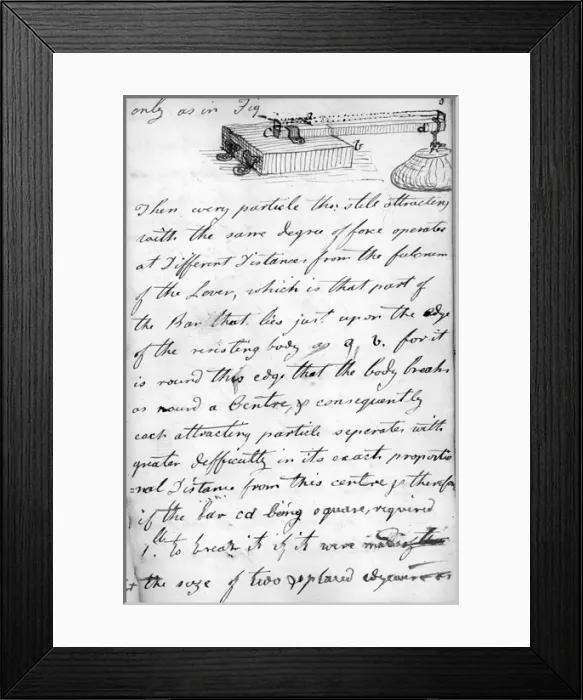 only as in Fig
b
Then every particle tho: stile attracting
with the same degree of force operates
at Different Distances from the fulcrum
of the Lever, which is that part of
the Bar that lies just upon the edge
of the resisting body as q b. for it
is round this edge that the body breaks
as round a Centre, & consequently
each attracting particle seperates with
greater defficulty in its exact proportio
=nal Distance from this centre & therefor
if the bar cd being square, required
1 lb to break it if it were
the size of two & placed edgeways